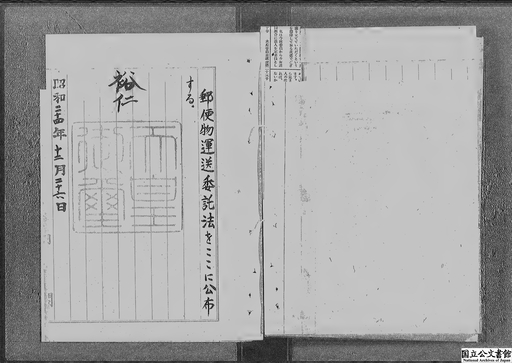 郵便物運送委託法をここに公布
する。
裕仁
天皇
御璽
昭和二十四年十二月二十六日
国立公文書館
National Archives of Japan